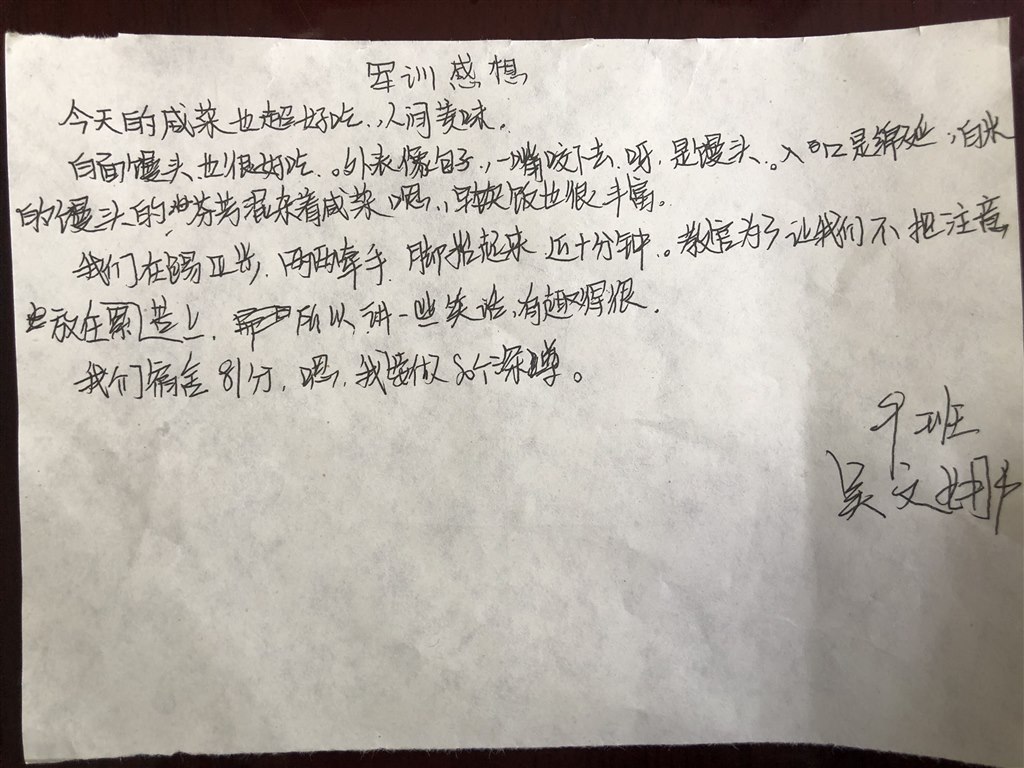 军训感想
今天的咸菜也超好吃,人间美味。
白面馒头也很好吃。外表像包子,一嘴咬下去,呀,是馒头。入口是绵延,白米
的馒头的芬芳混杂着咸菜,嗯,早饭也很丰富。
我们在踢正步,两两牵手,脚抬起来近十分钟。教官为了让我们不把注意
放在累苦上,所以讲一些笑话,有趣得很。
我们宿舍81分,嗯,我要做80个深蹲。
9班
吴文娜